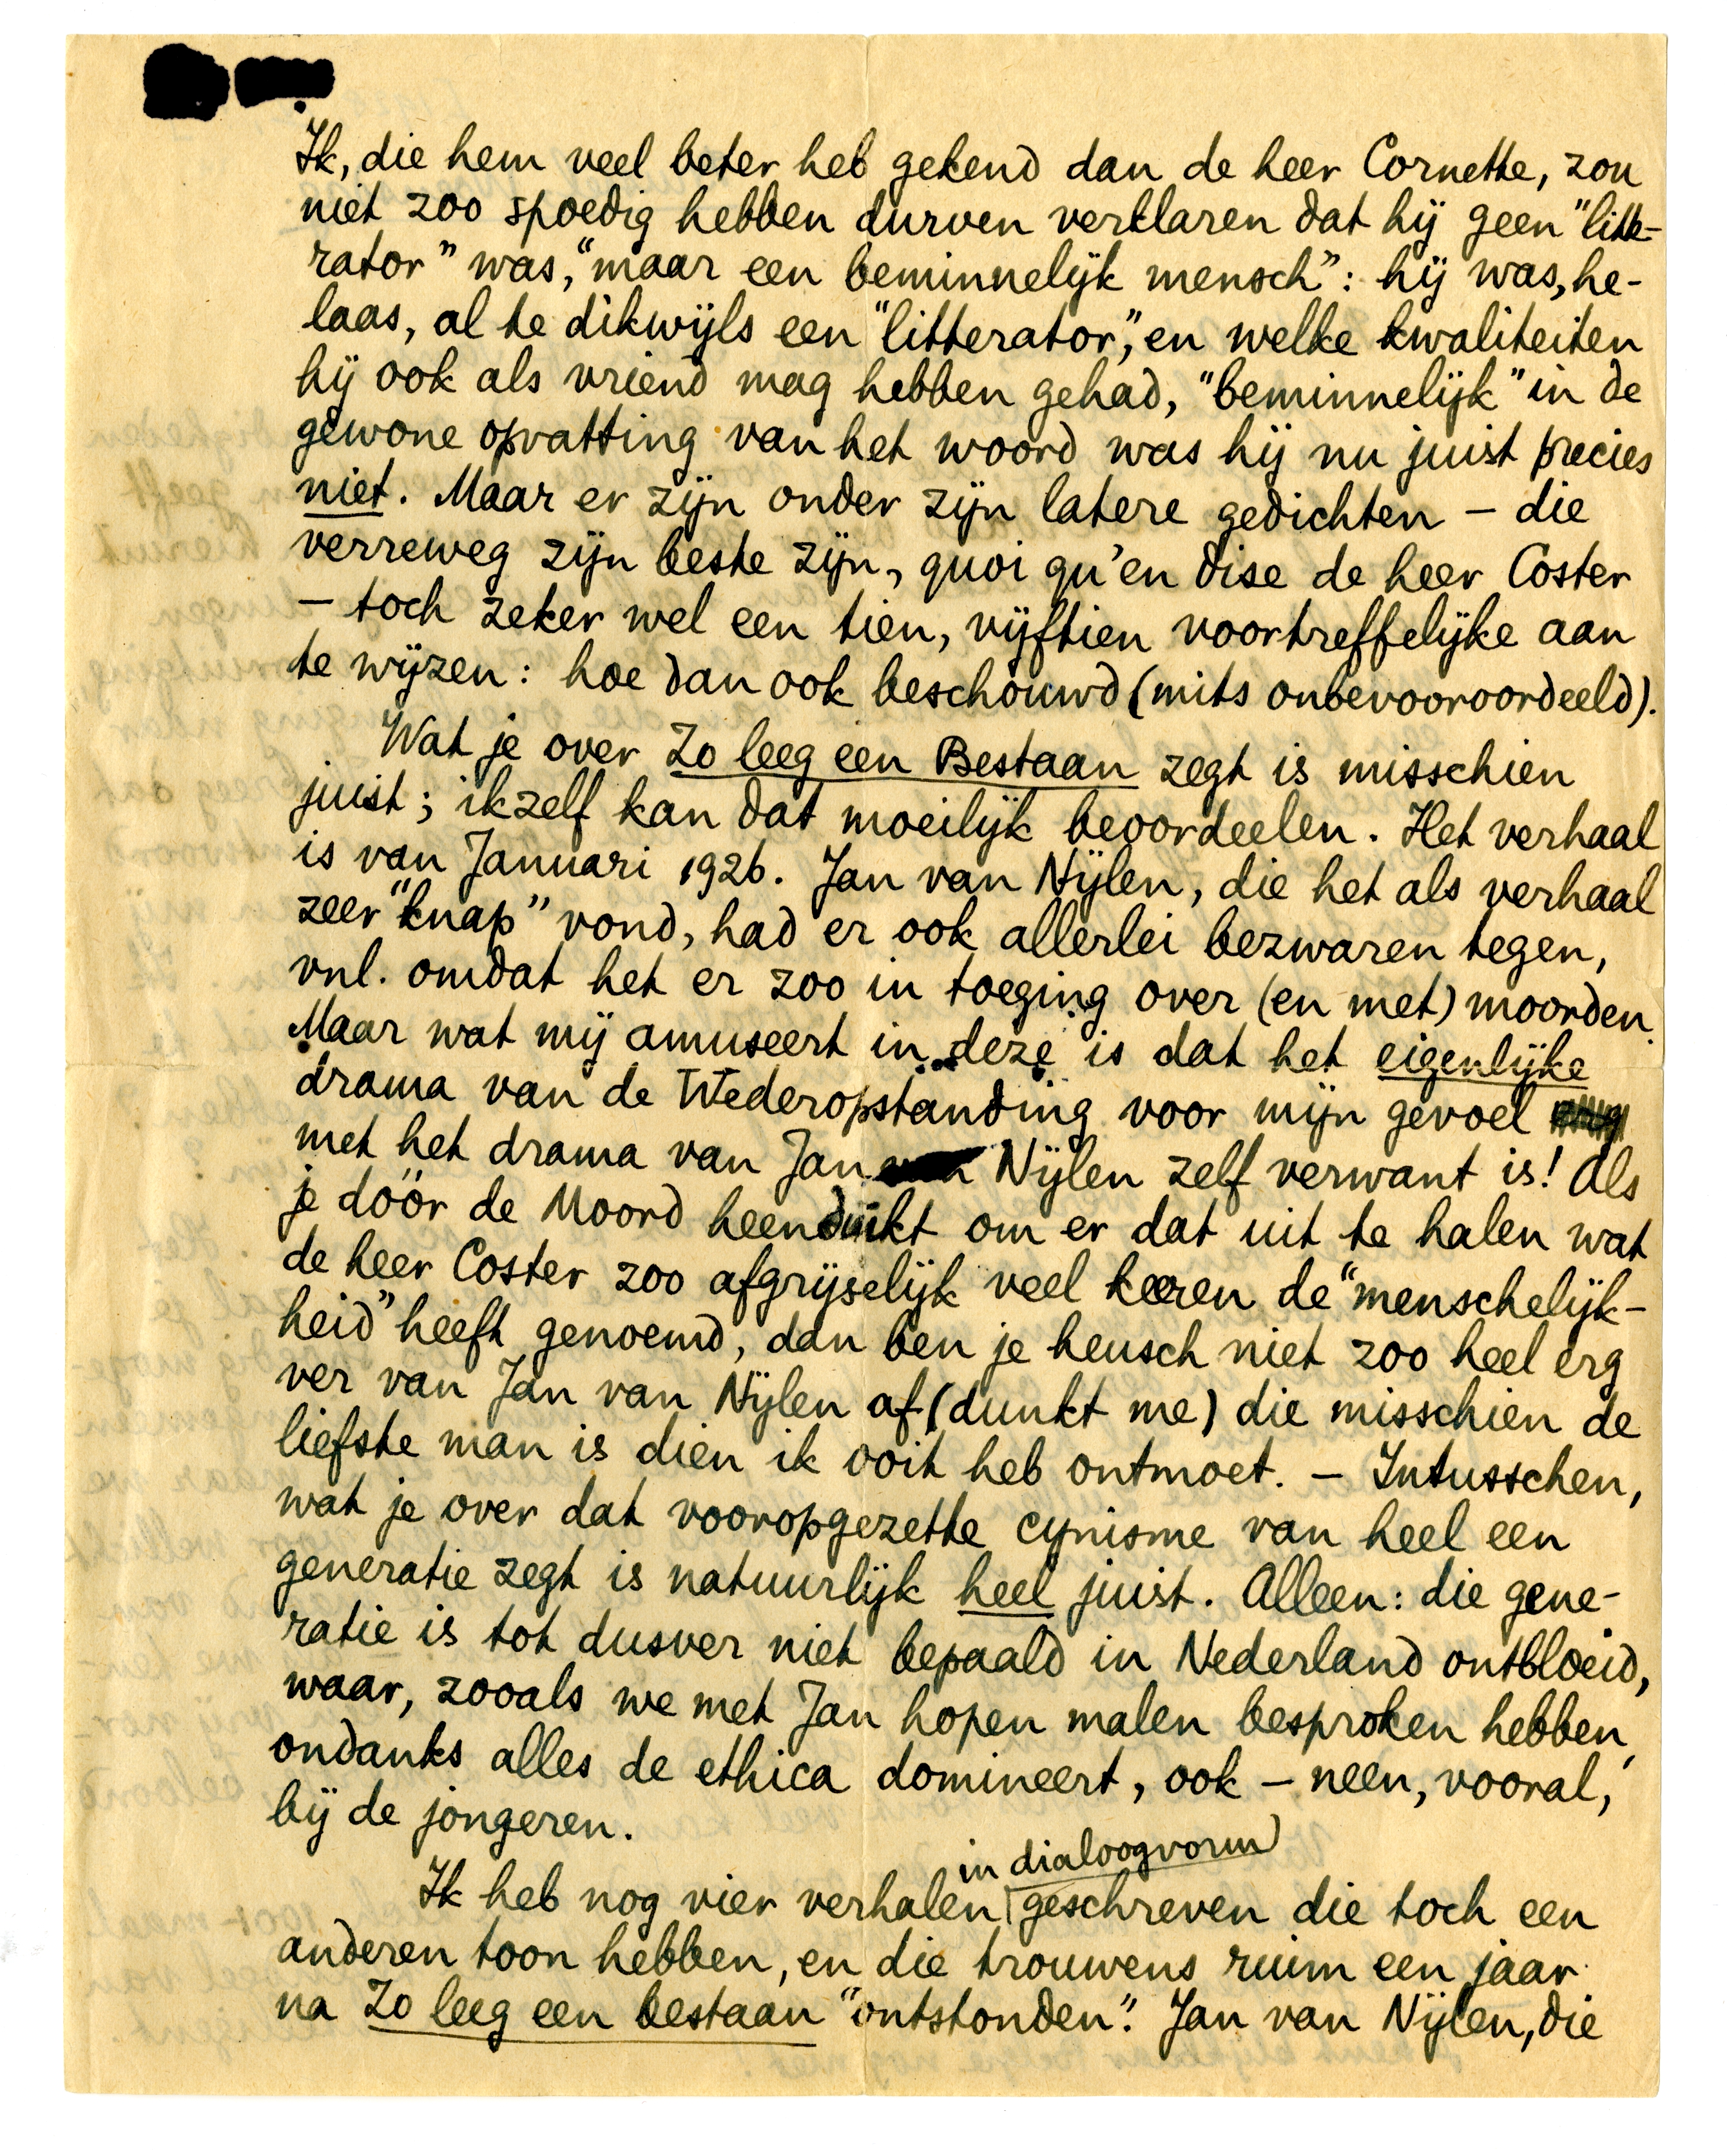 Ik, die hem veel beter heb gekend dan de heer Cornette, zou
niet zoo spoedig hebben durven verklaren dat hij geen "litte-
rator" was, "maar een beminnelijk mensch": hij was, he-
laas, al te dikwijls een "litterator", en welke kwaliteiten
hij ook als vriend mag hebben gehad, "beminnelijk" in de
gewone opvatting van het woord was hij nu juist precies
niet. Maar er zijn onder zijn latere gedichten – die
verreweg zijn beste zijn, quoi qu'en dise de heer Coster
– toch zeker wel een tien, vijftien voortreffelijke aan
te wijzen: hoe dan ook beschouwd (mits onbevooroordeeld).
Wat je over Zo leeg een Bestaan zegt is misschien
juist; ikzelf kan dat moeilijk beoordeelen. Het verhaal
is van Januari 1926. Jan van Nijlen, die het als verhaal
zeer "knap" vond, had er ook allerlei bezwaren tegen,
vnl. omdat het er zoo in toeging over (en met) moorden.
Maar wat mij amuseert in deze is dat het eigenlijke
drama van de Wederopstanding voor mijn gevoel
met het drama van Jan van Nijlen zelf verwant is! Als
je dóór de Moord heenduikt om er dat uit te halen wat
de heer Coster zoo afgrijselijk veel keeren de "menschelijk-
heid" heeft genoemd, dan ben je heusch niet zoo heel erg
ver van Jan van Nijlen af (dunkt me) die misschien de
liefste man is dien ik ooit heb ontmoet. – Intusschen,
wat je over dat vooropgezette cynisme van heel een
generatie zegt is natuurlijk heel juist. Alleen: die gene-
ratie is tot dusver niet bepaald in Nederland ontbloeid,
waar, zooals we met Jan hopen malen besproken hebben,
ondanks alles de ethica domineert, ook – neen, vooral,
bij de jongeren.
in dialoogvorm
Ik heb nog vier verhalen geschreven die toch een
anderen toon hebben, en die trouwens ruim een jaar
na Zo leeg een bestaan "ontstonden". Jan van Nijlen, die